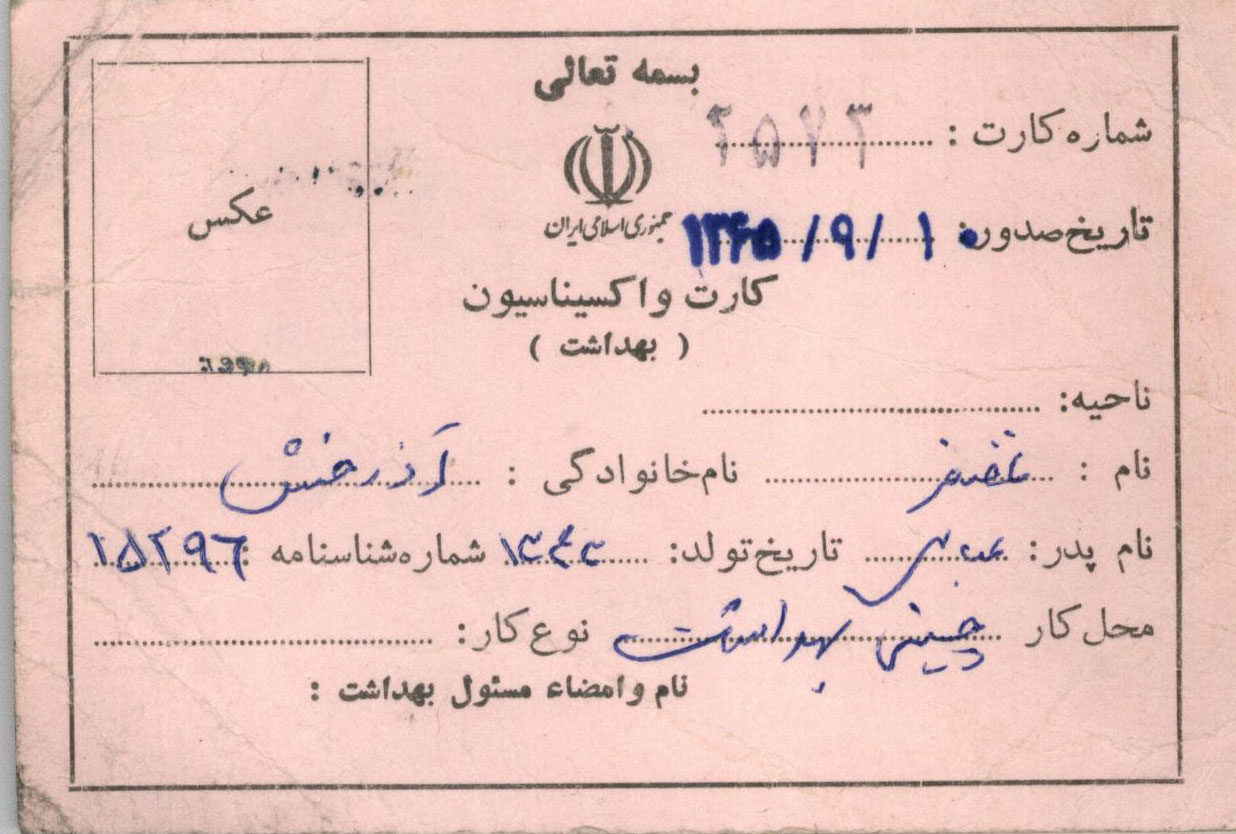 بسمه تعالی
شماره کارت : ۲۵۷۳
جمهوری اسلامی ایران
تاریخ صدور: ۱۳۶۵/۹/۱۰
کارت واکسیناسیون
( بهداشت )
عکس
ناحیه:
نام : غضنفر نام خانوادگی : آذرخش
نام پدر: تاریخ تولد: شماره شناسنامه : ۱۵۲۹۶
محل کار چینی بهداشتی نوع کار:
نام و امضاء مسئول بهداشت :